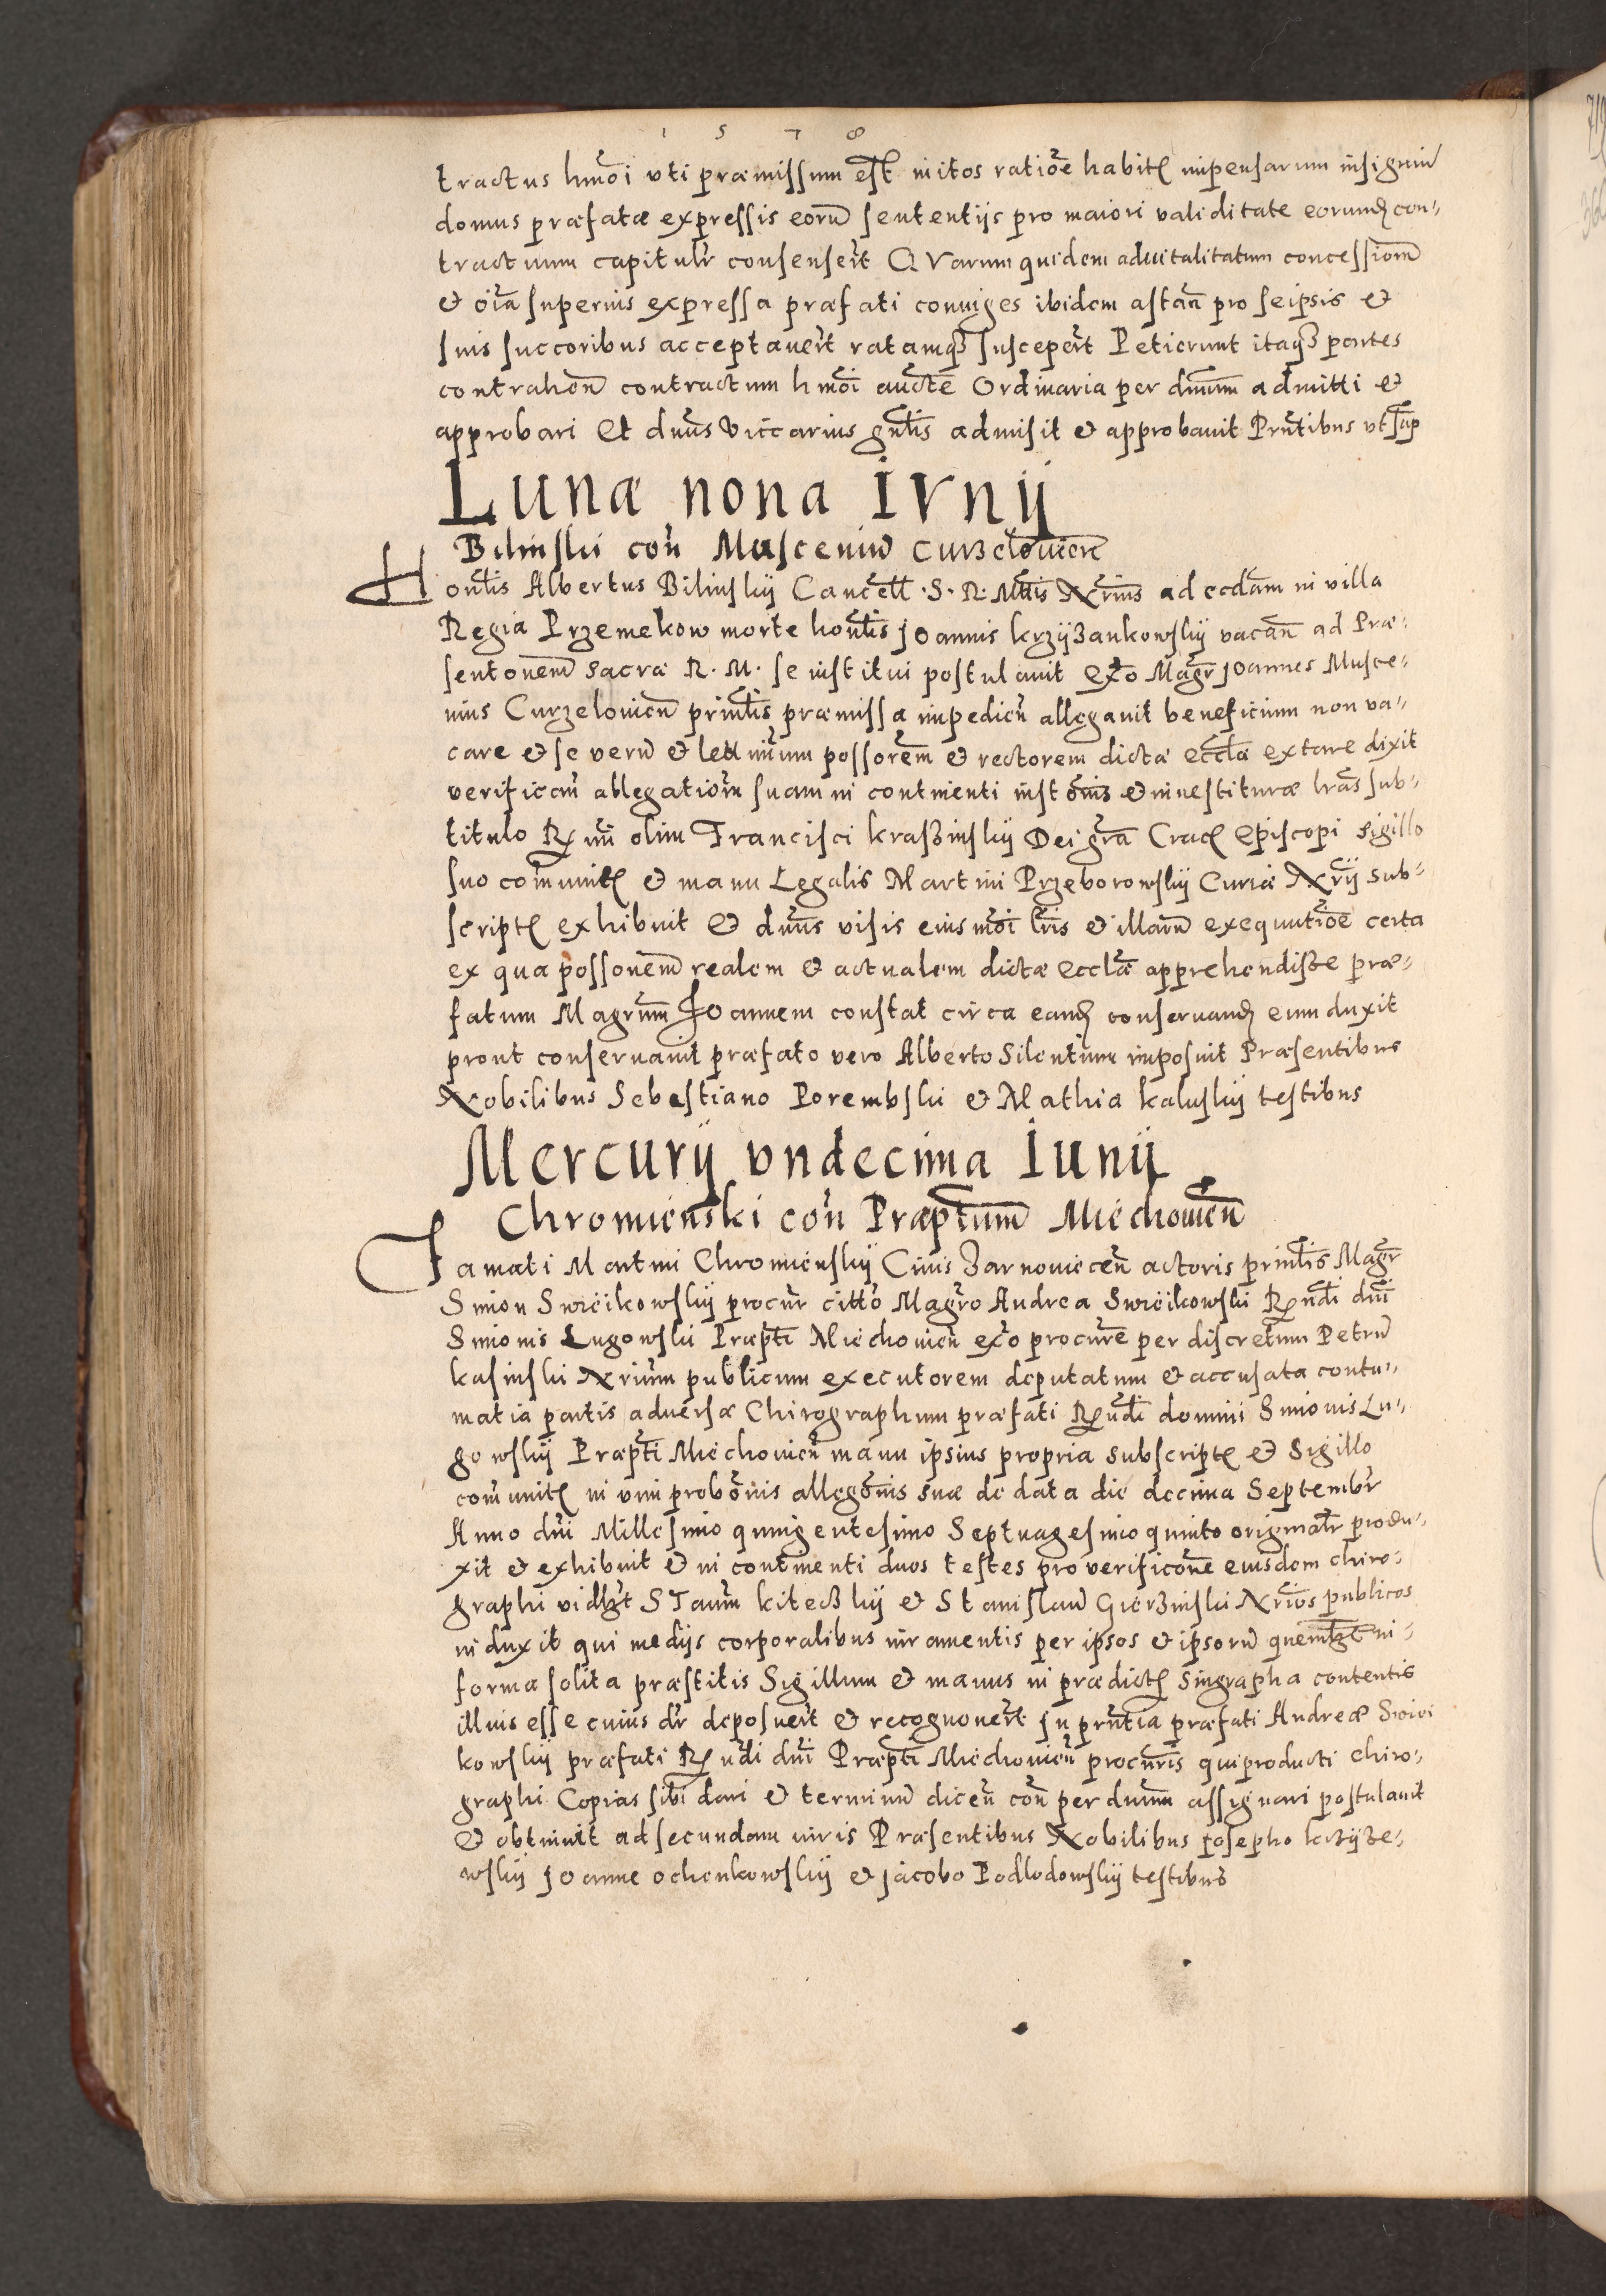 1578
tractus hmõi vti præmissum est initos ratiõe habitꝭ impensarum insigniũ
domus præfatæ expressis eorũ sententijs pro maiori validitate eorundꝫ con„
tractuum capitulr̃ consenser̃t QVarum quidem aduitalitatum concessiom̃
& oĩa superius expressa præfati coniuges ibidem astañ pro seipsis &
suis succoribus acceptauer̃t ratamqꝫ susceper̃t Petierunt itaqꝫ partes
contraheñ contractum hmõi aucte Ordinaria per dnum̃ admitti &
approbari Et dnũs Viccarius gñlis admisit & approbauit Prñtibus vt sup
Lunæ nona IVnij
Bilinski coñ Musceniũ Curzelouieñ
Honlis̃ Albertus Bilinskij Cancell̃ S. R. Mttis̃ Nrius̃ ad ecclam̃ in villa
Regia Przemekow morte honlis̃ Joannis krzijzankowskij vacañ ad Præ„
sentonem̃ sacræ R. M. se institui postulauit Exõ Magr̃ Joannes Musce„
nius Curzelouieñ prinlis̃ præmissa impedieñ allegauit beneficium non va„
care & se verũ & leũmum possorem̃ & rectorem dictæ eccl̃æ extare dixit
verificañ allegatiom̃ suam in continenti instonis̃ & inuestituræ lrãs sub„
titulo Rmĩ olim Francisci krasinskij Dei grã Cracꝭ Episcopi sigillo
suo com̃unitꝭ & manu Legalis Martini Przeborowskij Curiæ Nrij̃ sub„
scriptꝭ exhibuit & dnũs visis eiusmõi lrĩs & illarũ exequutiõe certa
ex qua possonem̃ realem & actualem dictæ ecclæ̃ apprehendisse præ„
fatum Magrum̃ Joannem constat circa eandꝫ conseruandꝫ eum duxit
prout conseruauit præfato vero Alberto Silentium imposuit Præsentibus
Nobilibus Sebestiano Porembski & Mathia kaluskij testibus
Mercurij vndecima Iunij
Chromienski coñ Præptum̃ Miechouieñ
Famati Martini Chromienskij Ciuis Zarnouieceñ actoris prinlis̃ Magr̃
Simon Swieikowskij procur̃ cittõ Magrõ Andrea Swieikowski Rñdi dnĩ
Simonis Lugowski Præptĩ Miechouieñ exõ procurẽ per discretum Petrũ
kasinski Nrium̃ publicum executorem deputatum & accusata contu„
matia partis aduersæ Chirographum præfati Rñdi domini Simonis Lu„
gowskij Præptĩ Miechouieñ manu ipsius propria subscriptꝭ & Sigillo
com̃unitꝭ in vim probonis̃ allegonis̃ suæ de data die decima Septembr̃
Anno dnĩ Millesimo quingentesimo Septuagesimo quinto originalr̃ produ„
xit & exhibuit & in continenti duos testes pro verificone̔ eiusdem chiro„
graphi vidlꝫt STanum̃ kiteßkij & Stanislaũ Gierzinski Nriõs publicos
induxit qui medijs corporalibus iuramentis per ipsos & ipsorũ quemlꝫt in„
forma solita præstitis Sigillum & manus in prædictꝭ Singrapha contentis
illius esse cuius dr̃ deposuer̃t & recognouer̃t Jn prñtia præfati Andreæ Swiei
kowskij præfati Rñdi dnĩ Præptĩ Miechouieñ procuris̃ qui producti chiro„
graphi Copias sibi dari & terminũ diceñ coñ per dnum̃ assignari postulauit
& obtinuit ad secundam iuris Præsentibus Nobilibus Josepho krzijze„
wskij Joanne ochenkowskij & Jacobo Podlodowskij testibus